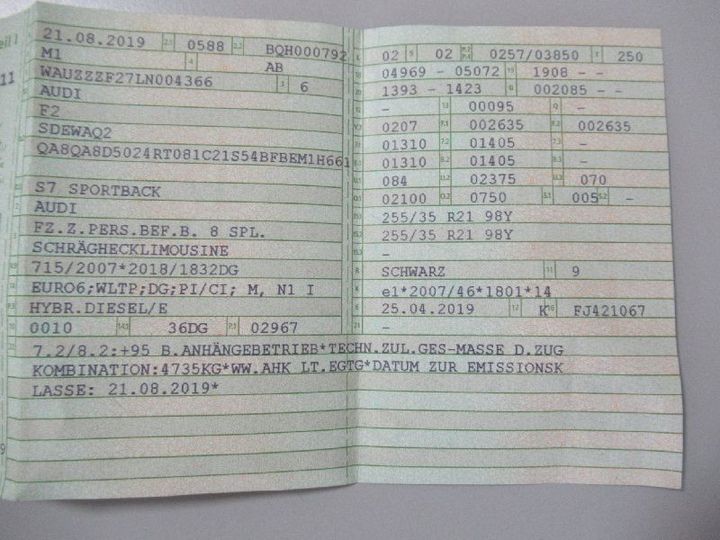 eil I
11
9
21.08.2019 2.1 0588 2.2 BQH000792
M1 4 AB
WAUZZZF27LN004366 3 6
AUDI
F2
SDEWAQ2
QA8QA8D5024RT081C21S54BFBEM1H661
S7 SPORTBACK
AUDI
FZ.Z.PERS.BEF.B. 8 SPL.
SCHRÄGHECKLIMOUSINE
715/2007*2018/1832DG
EURO6;WLTP;DG;PI/CI; M, N1 I
HYBR.DIESEL/E
0010 14.1 36DG P.1 02967
02 02 0257/03850 T 250
04969 - 05072 19 1908 - -
1393 - 1423 G 002085 - -
- 00095 Q -
0207 F.1 002635 F.2 002635
01310 7.2 01405 7.3 -
01310 8.2 01405 8.3 -
084 02375 070
02100 O.2 0750 S.1 005 S.2 -
255/35 R21 98Y
255/35 R21 98Y
-
SCHWARZ 11 9
e1*2007/46*1801*14
25.04.2019 17 K 16 FJ421067
-
7.2/8.2:+95 B.ANHÄNGEBETRIEB*TECHN.ZUL.GES-MASSE D.ZUG
KOMBINATION:4735KG*WW.AHK LT.EGTG*DATUM ZUR EMISSIONSK
LASSE: 21.08.2019*